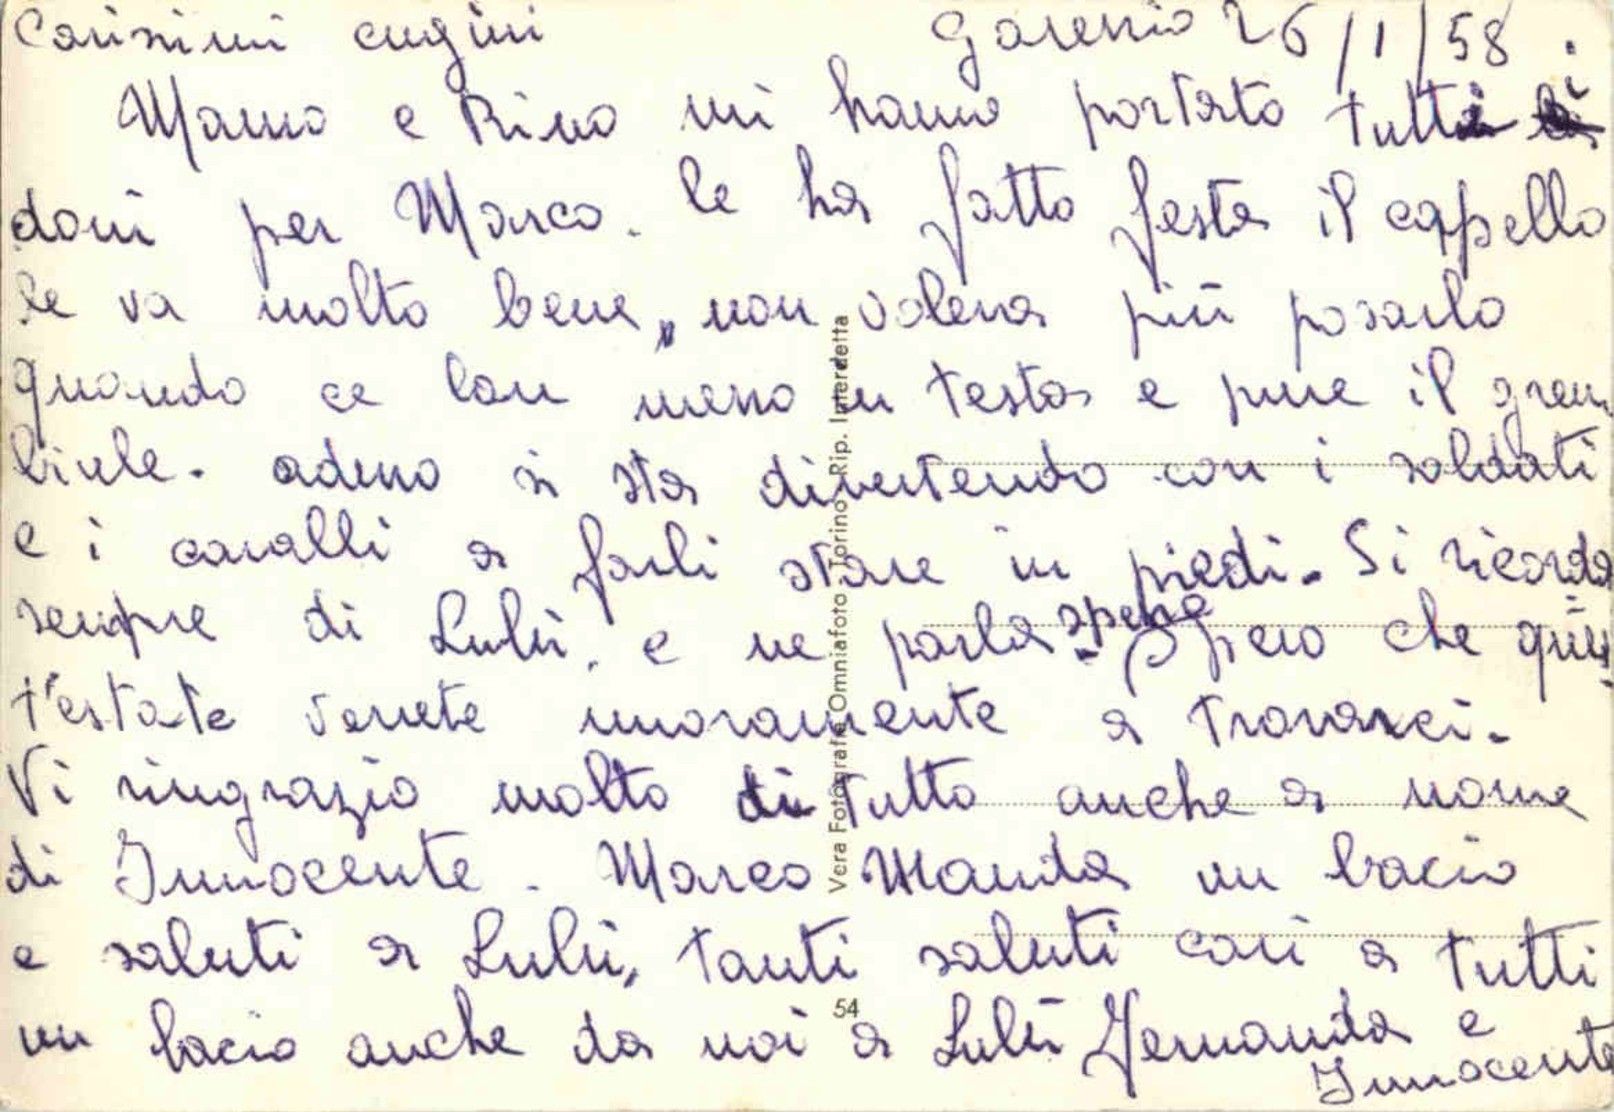 Carissimi cugini Garessio 26/1/58.
Mamma e Rino mi hanno portato tutti i
doni per Marco. le ha fatto festa il cappello
le va molto bene, non voleva più posarlo
quando ce lan messo in testa e pure il grem
biule. adesso si sta divertendo con i soldati
e i cavalli a farli stare in piedi. Si ricorda
sempre di Lulù, e ne parla spesso. Spero che ques
t'estate verrete nuovamente a trovarci.
Vi ringrazio molto di tutto anche a nome
di Innocente. Marco Manda un bacio
e saluti a Lulù, tanti saluti cari a tutti
un bacio anche da noi a Lulù Fernanda e
Innocente
Vera Fotografia Omniafoto Torino Rip. Interdetta
54